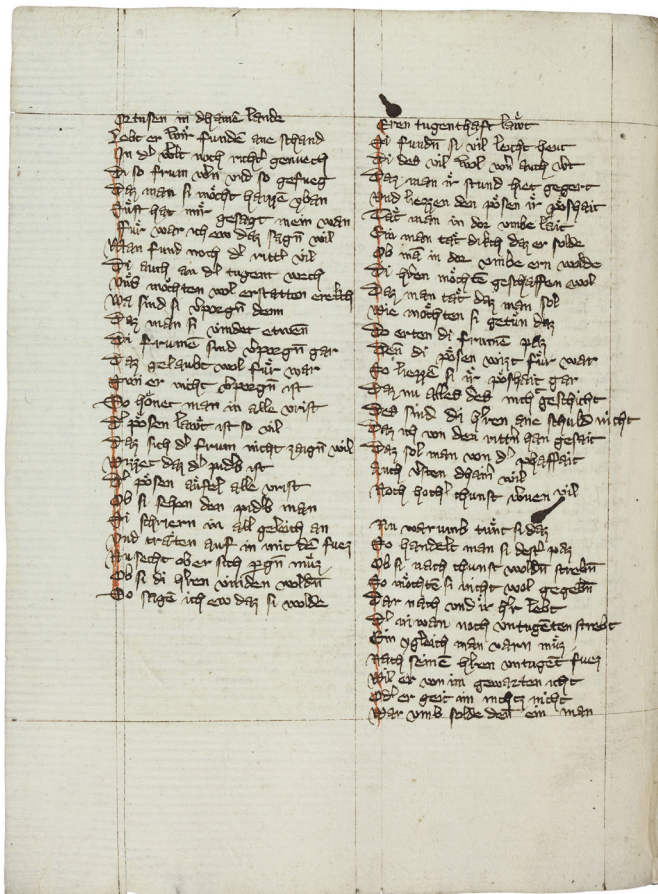 Artusen in dhainē lande
Lebt er wir fundē ane schand
In d' welt noch ritt' genuech
Di so frum wern vnd so gefueg
Daz man si möcht haizze yban
Fürst hat mir gesagt mein wan
Für war ich ew daz sagn wil
Man fund noch d' ritt' vil
Di auch an d' tugent wech
Vns möchten wol erstatten erekch
Wa sind si v'porgn denn
Daz man si vindet etwen
Di frumē sind v'porgn gar
Daz gelaubt wol für war
Swi er nicht v'porgn ist
So hönet man in alle vrist
D' pösen läwt ist so vil
Daz sich d' frum nicht zaign wil
Wizzet daz d' pid'b ist
D' pösen äufel alle vrist
Ob si sehen den pid'b man
Si schriern in all geleich an
Vnd träten auf in mit dē fuez
Nu secht ob er sich p'gn müz
Ob si di h'ren vinden woldn
So sage ich ew daz si wolde
Eren tugenthaft läwt
Si fundn si vil leicht heut
Di des vil wol wern auch wt
Daz man ir stund hiet gegert
Vnd liezzen den pösen ir pöshait
Tät man in dor vmbe lait
Ein man tät dikch daz er solde
Ob mā in dor vmbe ern wolde
Di h'ren möchtē geschaffen wol
Daz man tät daz man sol
Wie möchten si getün daz
Do erten di frumē paz
Denn di pösen wizt für war
So liezzē si ir pöshait gar
Daz nu alles des nicht geschicht
Des sind di h'ren ane schuld nicht
Daz ich von den ritt'n han gesait
Daz sol man von d' phaffait
Auch v'sten dhain' wil
Noch hoch' chunst wuen vil
Nu warumb tünt si daz
So handelt man si dest' paz
Ob si nach chunst woldn strebn
So möchtē si nicht wol gegebn
Dar nach vnd ir h'r lebt
D' in wan noch vntugētten strebt
Ein ygleich man varn müz
Nach seinē h'ren vntugēt fuez
Wil er von im gewarten icht
Od' er geit im nichtz nicht
War vmb solde denn ein man